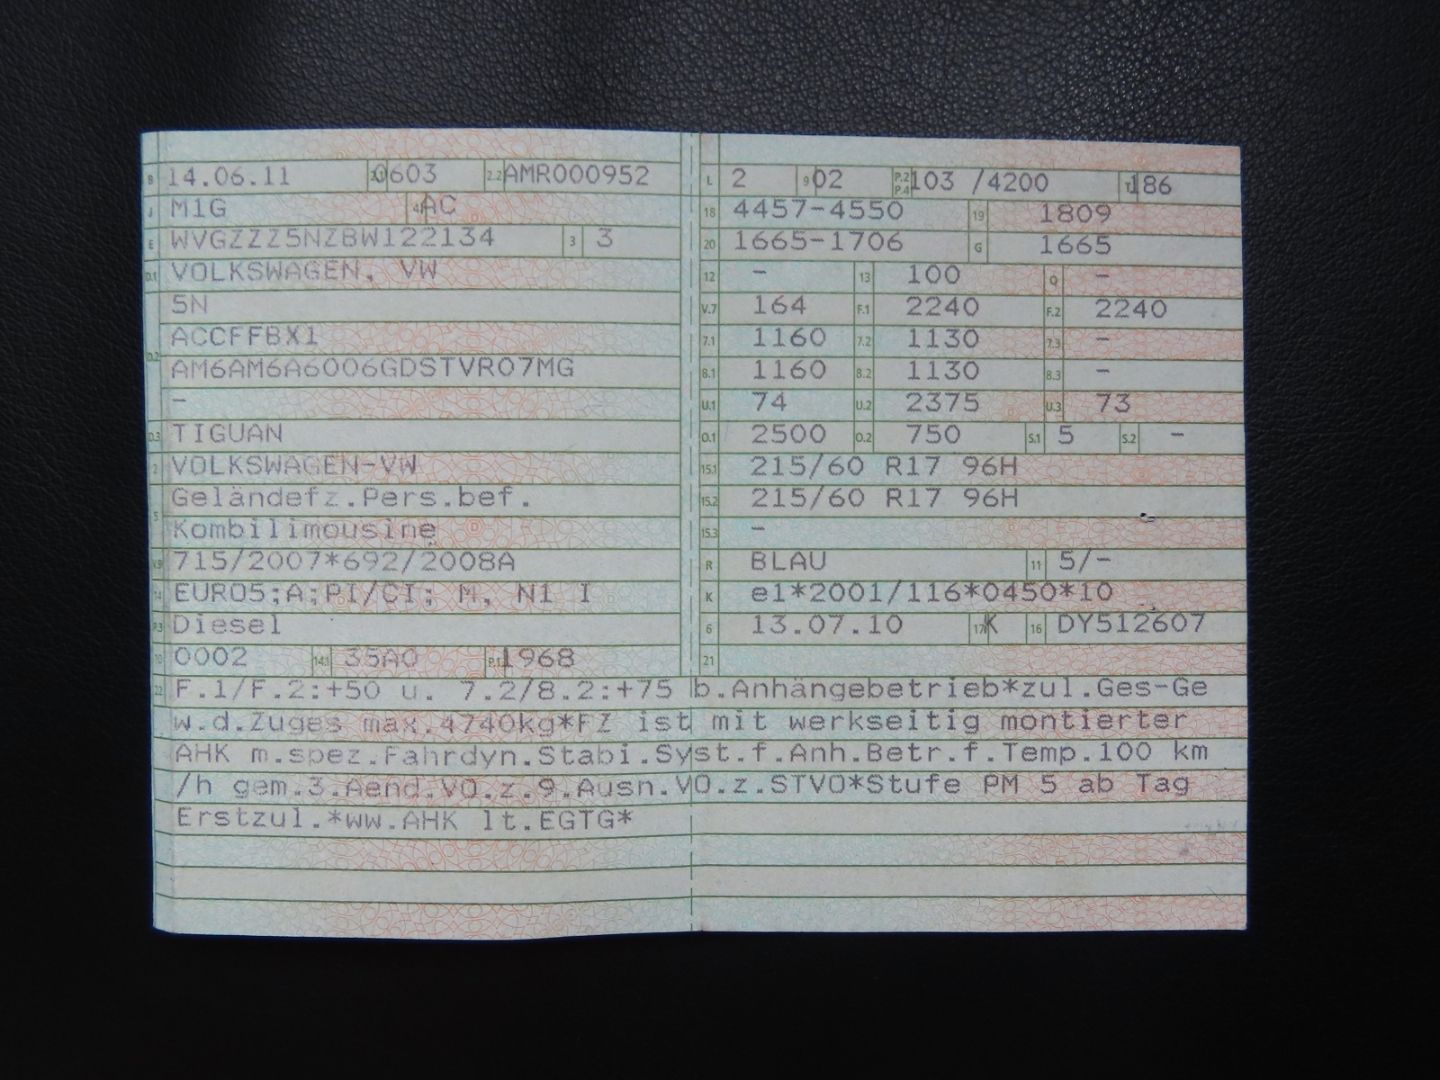 B 14.06.11 2.1 0603 2.2 AMR000952
J M1G 4 AC
E WVGZZZ5NZBW122134 3 3
D.1 VOLKSWAGEN, VW
5N
D.2 ACCFFBX1
AM6AM6A6006GDSTVR07MG
–
D.3 TIGUAN
2 VOLKSWAGEN-VW
5 Geländefz.Pers.bef.
Kombilimousine
V.9 715/2007*692/2008A
14 EURO5;A;PI/CI; M, N1 I
P.3 Diesel
10 0002 14.1 35A0 P.1 1968
L 2 9 02 P.2 P.4 103 /4200 T 186
18 4457-4550 19 1809
20 1665-1706 G 1665
12 – 13 100 Q –
V.7 164 F.1 2240 F.2 2240
7.1 1160 7.2 1130 7.3 –
8.1 1160 8.2 1130 8.3 –
U.1 74 U.2 2375 U.3 73
O.1 2500 O.2 750 S.1 5 S.2 –
15.1 215/60 R17 96H
15.2 215/60 R17 96H
15.3 –
R BLAU 11 5/–
K e1*2001/116*0450*10
6 13.07.10 17 K 16 DY512607
21
22 F.1/F.2:+50 u. 7.2/8.2:+75 b.Anhängebetrieb*zul.Ges-Ge
w.d.Zuges max.4740kg*FZ ist mit werkseitig montierter
AHK m.spez.Fahrdyn.Stabi.Syst.f.Anh.Betr.f.Temp.100 km
/h gem.3.Aend.VO.z.9.Ausn.VO.z.STVO*Stufe PM 5 ab Tag
Erstzul.*ww.AHK lt.EGTG*